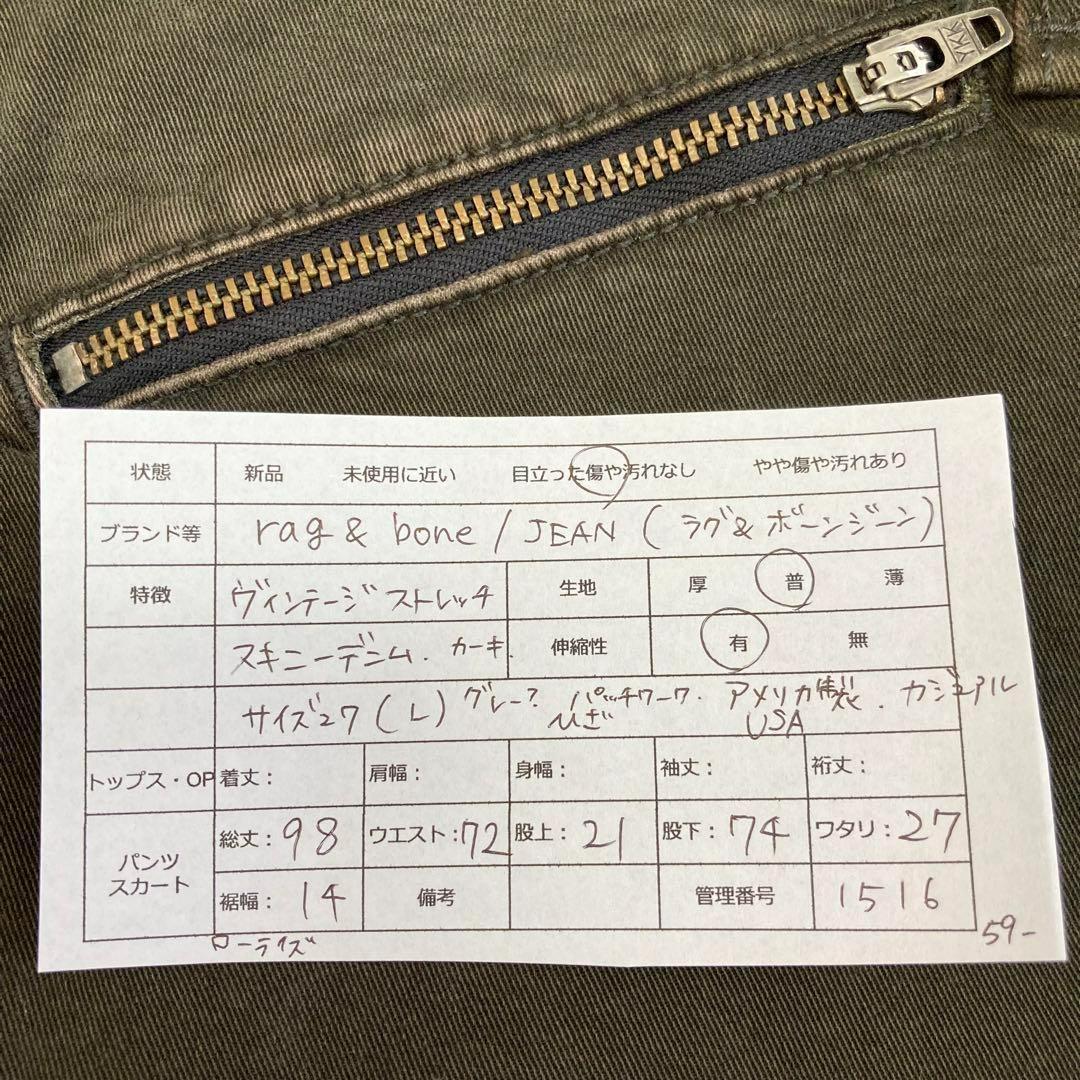 YKK
状態 新品 未使用に近い 目立った傷や汚れなし やや傷や汚れあり
ブランド等 rag & bone / JEAN (ラグ&ボーンジーン)
特徴 ヴィンテージストレッチ 生地 厚 普 薄
スキニーデニム. カーキ. 伸縮性 有 無
サイズ27 (L) グレー? パッチワーク. アメリカ製. カジュアル
ひざ USA
トップス・OP 着丈: 肩幅: 身幅: 袖丈: 裄丈:
パンツ スカート 総丈:98 ウエスト:72 股上:21 股下:74 ワタリ:27
裾幅:14 備考 管理番号 1516
ローライズ 59-